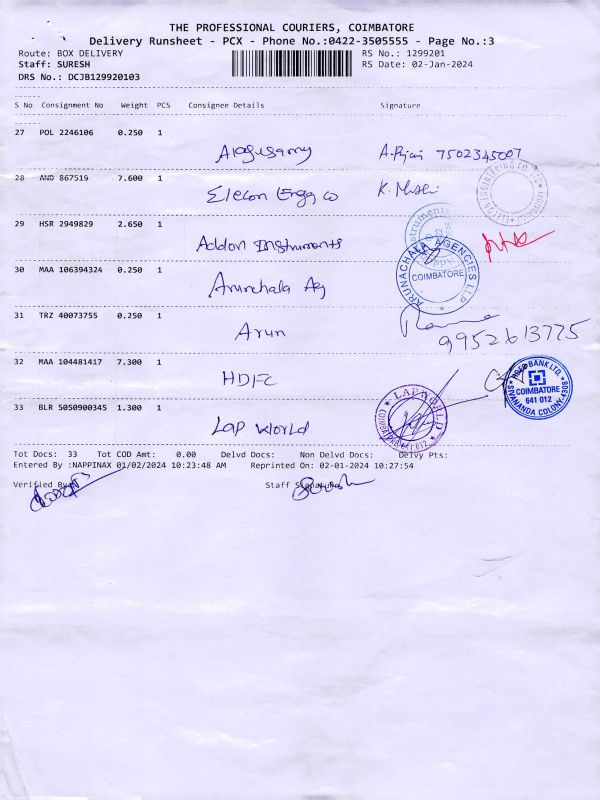 THE PROFESSIONAL COURIERS, COIMBATORE
Delivery Runsheet - PCX - Phone No.:0422-3505555 - Page No.:3
Route: BOX DELIVERY RS No.: 1299201
Staff: SURESH RS Date: 02-Jan-2024
DRS No.: DCJB129920103
S No Consignment No Weight PCS Consignee Details Signature
27 POL 2246106 0.250 1
Alagusamy 7502345007
28 AND 867519 7.600 1
Elecon Engg co K.
29 HSR 2949829 2.650 1
Addon Instruments
30 MAA 106394324 0.250 1
Arunchala Ag
ARUNACHALA AGENCIES LLP
COIMBATORE
31 TRZ 40073755 0.250 1
Arun 9952613775
32 MAA 104481417 7.300 1
HDFC
HDFC BANK LTD.
COIMBATORE
641 012
SIVANANDA COLONY-4308
33 BLR 5050900345 1.300 1
Lap World
LAP WORLD
COIMBATORE 641 012
Tot Docs: 33 Tot COD Amt: 0.00 Delvd Docs: Non Delvd Docs: Delvy Pts:
Entered By :NAPPINAX 01/02/2024 10:23:48 AM Reprinted On: 02-01-2024 10:27:54
Verified By Staff Signature